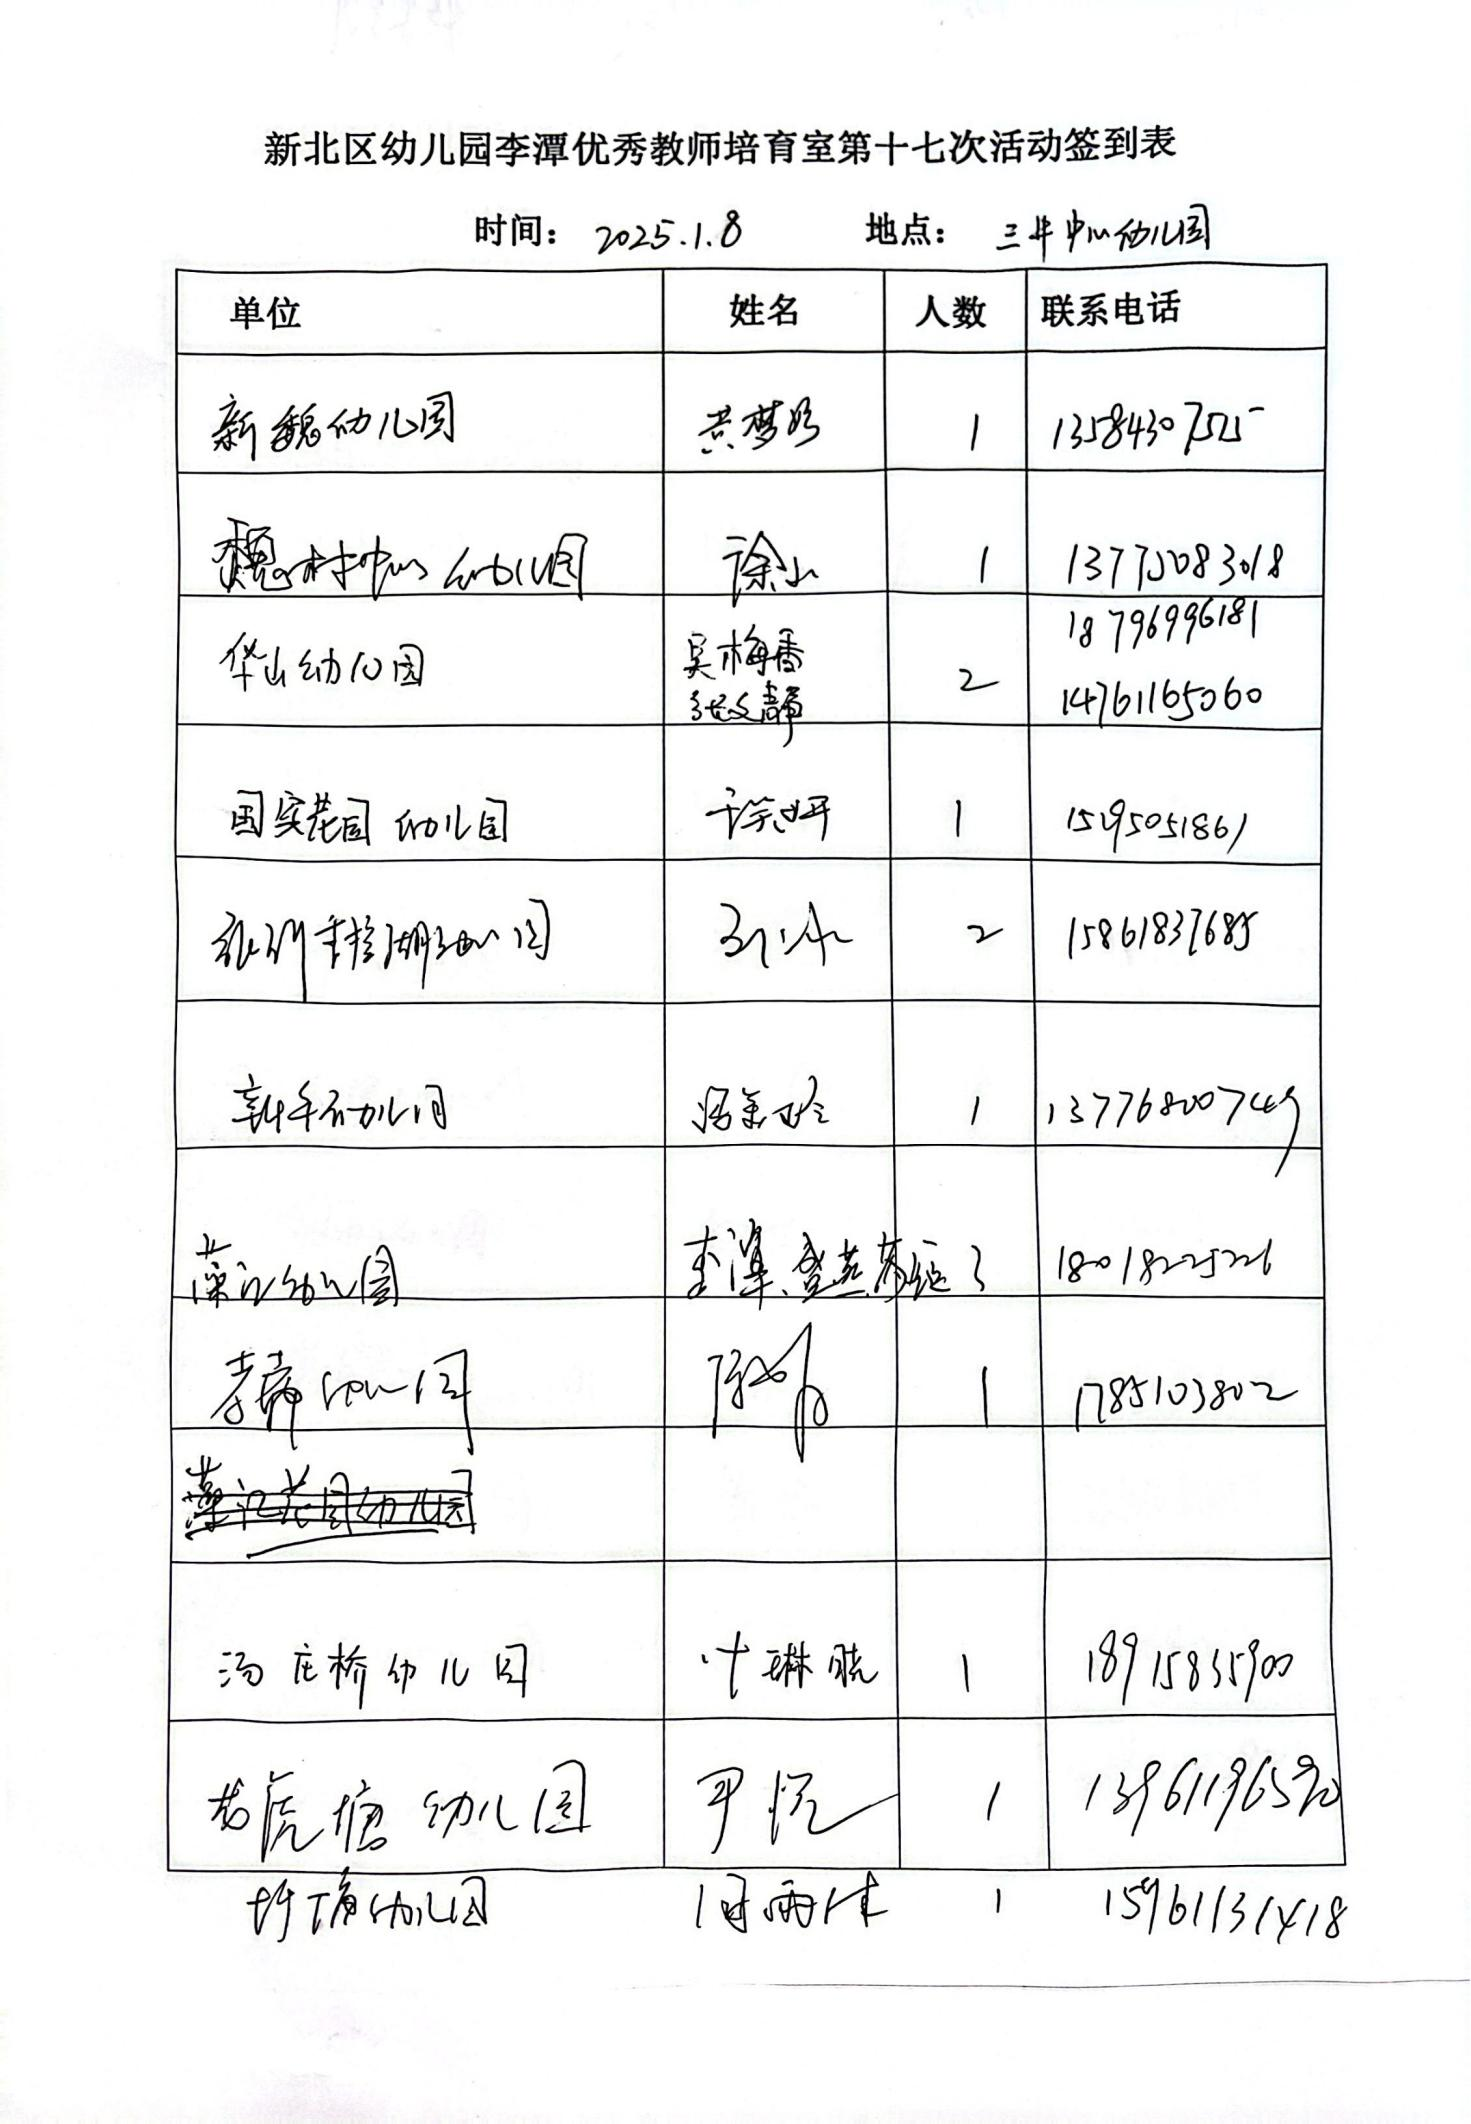 新北区幼儿园李潭优秀教师培育室第十七次活动签到表
时间： 2025.1.8 地点： 三井中心幼儿园
单位 姓名 人数 联系电话
新魏幼儿园 黄梦婷 1 13584307525
魏村中心幼儿园 徐 1 13775083018
华山幼儿园 吴梅香 2 18796996181
张文静 14761165060
国宾花园幼儿园 妍 1 1595051861
幼儿园 2 15861837685
幼儿园 1 13776800749
藻江幼儿园 李潭、 3 18018225226
幼儿园 1 1785103802
藻江花园幼儿园
汤庄桥幼儿园 叶琳 1 18915835900
龙虎塘幼儿园 尹悦 1 13961196590
圩塘幼儿园 周雨佳 1 15961131418